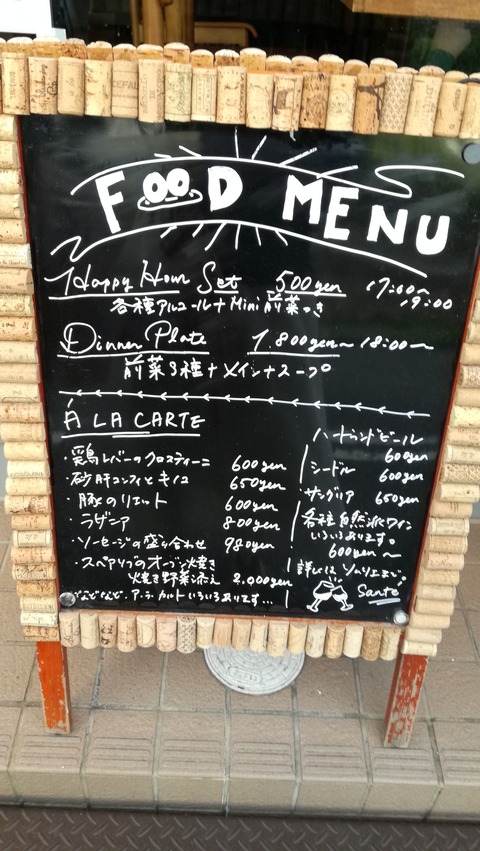 FOOD MENU
Happy Hour Set 500yen 17:00~19:00
各種アルコール+Mini前菜つき
Dinner Plate 1,800yen~ 18:00~
前菜3種+メイン+スープ
Á LA CARTE
・鶏レバーのクロスティーニ 600yen
・砂肝コンフィとキノコ 650yen
・豚のリエット 600yen
・ラザニア 800yen
・ソーセージの盛り合わせ 980yen
・スペアリブのオーブン焼き
焼き野菜添え 2,000yen
などなど・アラカルトいろいろあります...
ハートランドビール
600yen
シードル
600yen
サングリア 650yen
各種自然派ワイン
いろいろあります。
600yen~
詳しくはソムリエまで。
Santé